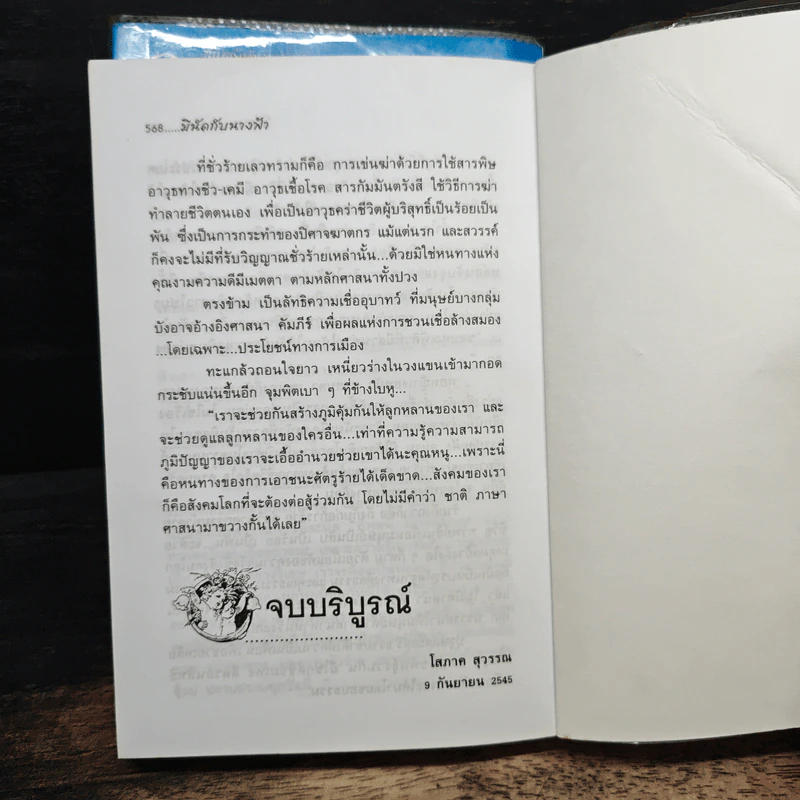 568.....มินัดกับนางฟ้า
ที่ชั่วร้ายเลวทรามก็คือ การเข่นฆ่าด้วยการใช้สารพิษ
อาวุธทางชีว-เคมี อาวุธเชื้อโรค สารกัมมันตรังสี ใช้วิธีการฆ่า
ทำลายชีวิตตนเอง เพื่อเป็นอาวุธคร่าชีวิตผู้บริสุทธิ์เป็นร้อยเป็น
พัน ซึ่งเป็นการกระทำของปิศาจฆาตกร แม้แต่นรก และสวรรค์
ก็คงจะไม่มีที่รับวิญญาณชั่วร้ายเหล่านั้น...ด้วยมิใช่หนทางแห่ง
คุณงามความดีมีเมตตา ตามหลักศาสนาทั้งปวง
ตรงข้าม เป็นลัทธิความเชื่ออุบาทว์ ที่มนุษย์บางกลุ่ม
บังอาจอ้างอิงศาสนา คัมภีร์ เพื่อผลแห่งการชวนเชื่อล้างสมอง
...โดยเฉพาะ...ประโยชน์ทางการเมือง
ทะแกล้วถอนใจยาว เหนี่ยวร่างในวงแขนเข้ามากอด
กระชับแน่นขึ้นอีก จุมพิตเบา ๆ ที่ข้างใบหู...
“เราจะช่วยกันสร้างภูมิคุ้มกันให้ลูกหลานของเรา และ
จะช่วยดูแลลูกหลานของใครอื่น...เท่าที่ความรู้ความสามารถ
ภูมิปัญญาของเราจะเอื้ออำนวยช่วยเขาได้นะคุณหนู...เพราะนี่
คือหนทางของการเอาชนะศัตรูร้ายได้เด็ดขาด...สังคมของเรา
ก็คือสังคมโลกที่จะต้องต่อสู้ร่วมกัน โดยไม่มีคำว่า ชาติ ภาษา
ศาสนามาขวางกั้นได้เลย”
จบบริบูรณ์
โสภาค สุวรรณ
9 กันยายน 2545